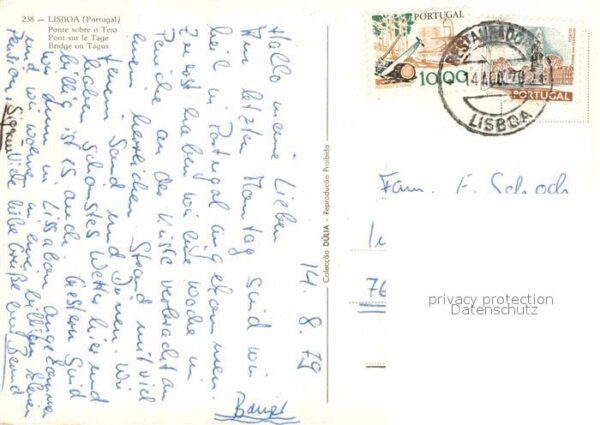 238 — LISBOA (Portugal)
Ponte sobre o Tejo
Pont sur le Tage
Bridge on Tagus
PORTUGAL
10.00
PORTUGAL
RESTAURADORES
14 AGO. 79
LISBOA
Colecção DÚLIA - Reprodução Proibida
14.8.79
Hallo meine Lieben
Am letzten Montag sind wir
heil in Portugal angekommen.
Zuerst haben wir eine Woche in
Peniche an der Küste verbracht an
einem herrlichen Strand mit viel
feinem Sand und Dünen. Wir
haben schönstes Wetter hier und
billig ist es auch. Gestern sind
wir dann in Lissabon angekommen
und wir wohnen in einer billigen kleinen
Pension. Viele liebe Grüße euer Bernd
Fam. E. Schoch
76
privacy protection
Datenschutz